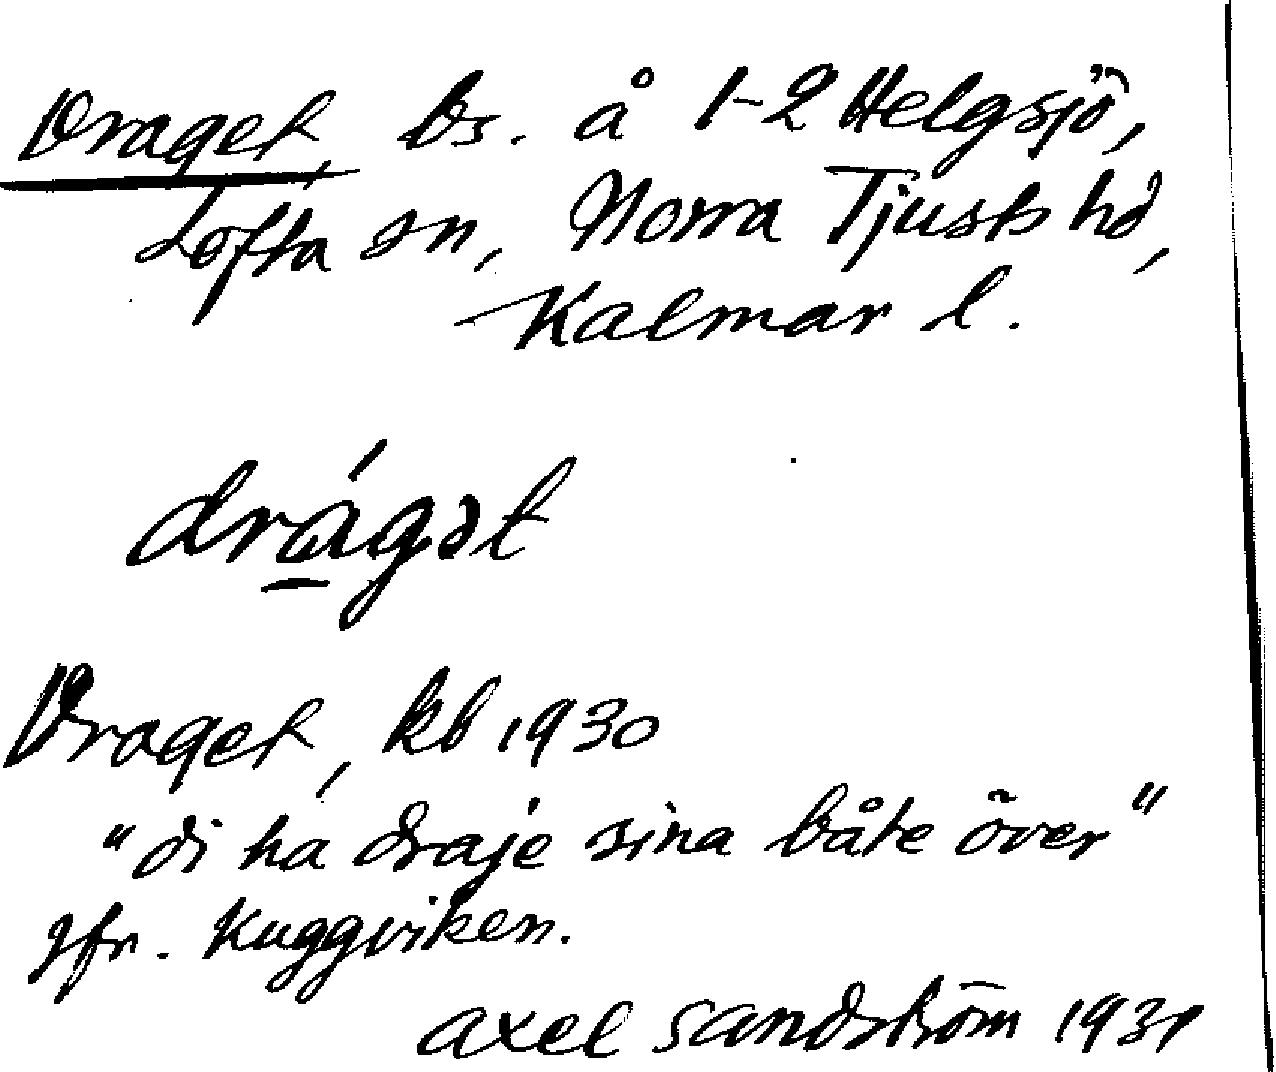 Draget, bs. å 1-2 Helgsjö,
Lofta sn, Norra Tjusts hd,
Kalmar l.
drágət
Draget, kb 1930
"di ha draje sina båte över"
Jfr. Kuggviken.
Axel Sandström 1931